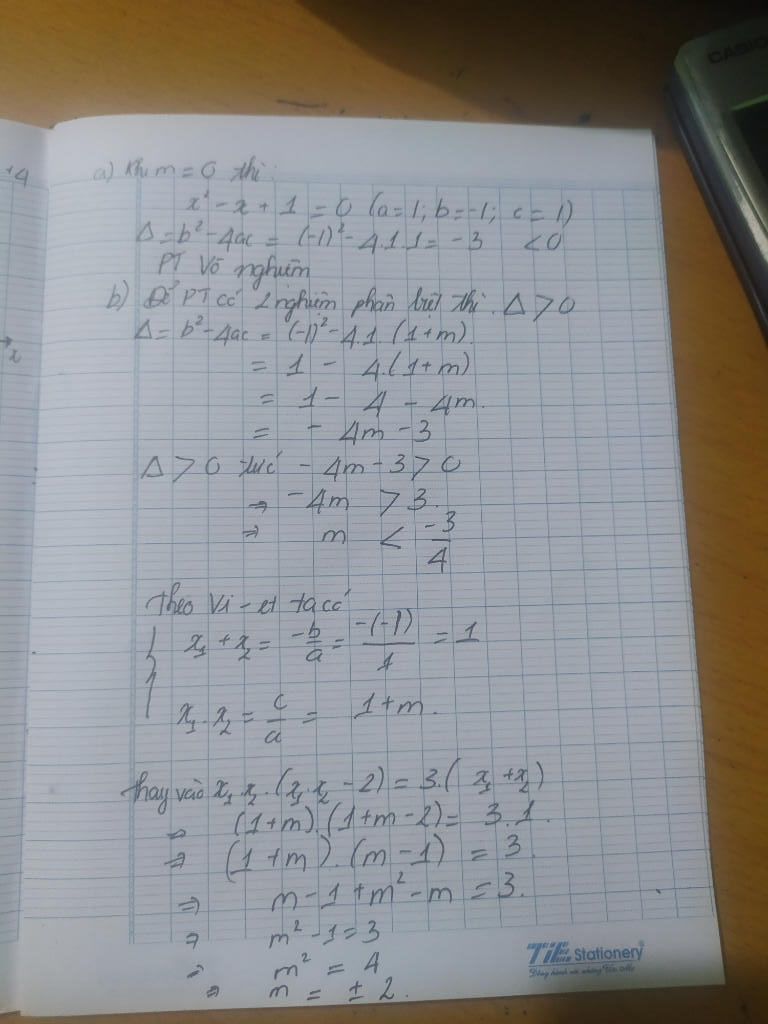 +4
CASIO
a) Khi m = 0 thì:
x² - x + 1 = 0 (a=1; b=-1; c=1)
Δ = b² - 4ac = (-1)² - 4.1.1 = -3 < 0
PT Vô nghiệm
b) Để PT có 2 nghiệm phân biệt thì. Δ > 0
Δ = b² - 4ac = (-1)² - 4.1.(1+m)
= 1 - 4.(1+m)
= 1 - 4 - 4m.
= - 4m - 3
Δ > 0 tức - 4m - 3 > 0
x
⇒ -4m > 3.
⇒ m < -3/4
Theo Vi-et ta có
x₁ + x₂ = -b/a = -(-1)/1 = 1
x₁.x₂ = c/a = 1+m.
thay vào x₁.x₂.(x₁.x₂ - 2) = 3.(x₁+x₂)
⇒ (1+m).(1+m-2) = 3.1.
⇒ (1+m).(m-1) = 3.
⇒ m-1+m²-m = 3.
⇒ m²-1=3
⇒ m² = 4
⇒ m = ± 2.
TiE Stationery